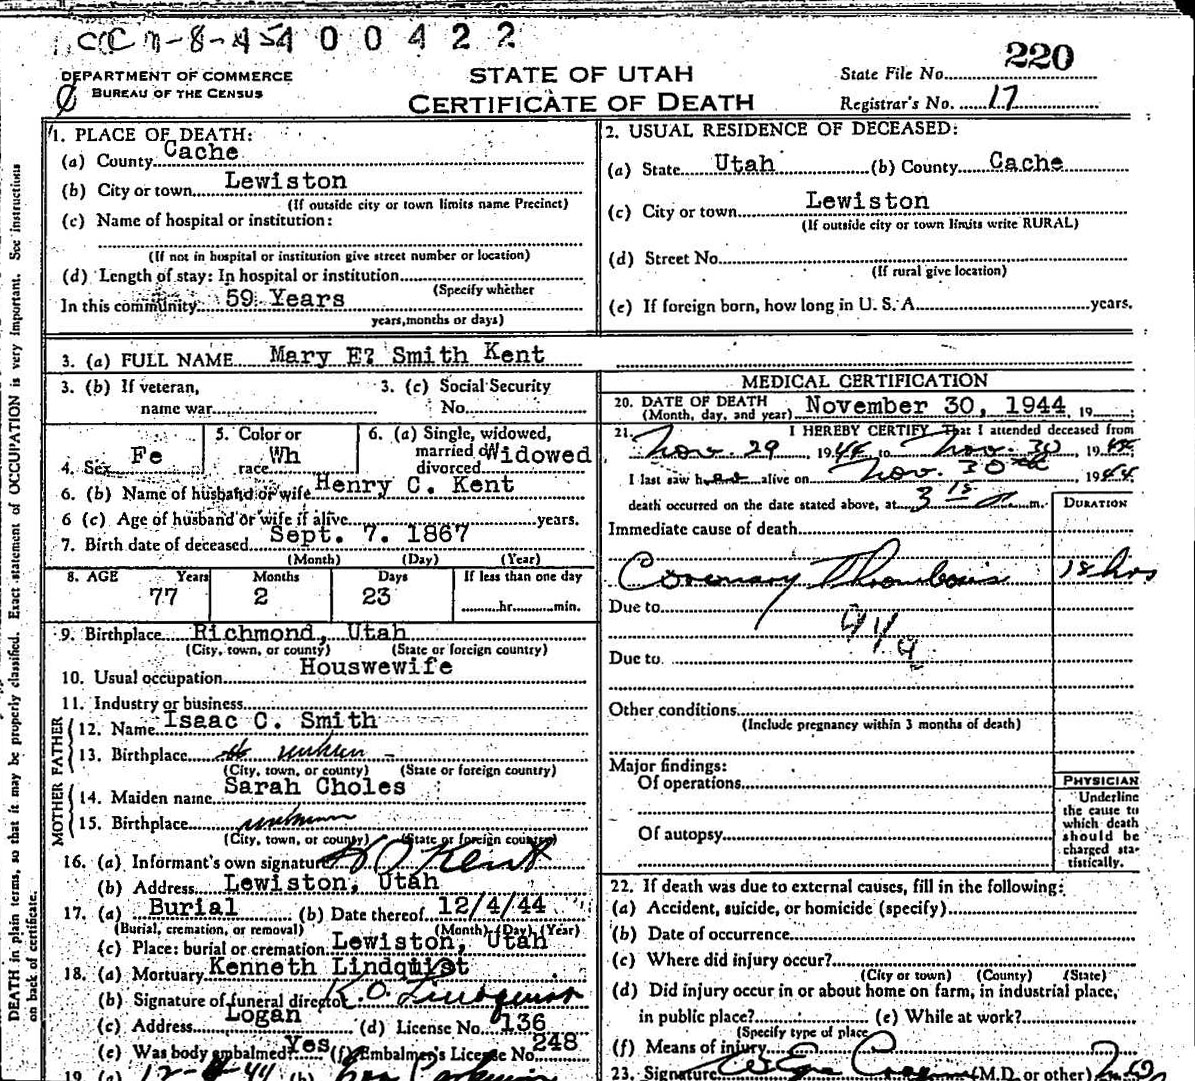 400422
220
DEPARTMENT OF COMMERCE
BUREAU OF THE CENSUS
STATE OF UTAH
CERTIFICATE OF DEATH
State File No.
Registrar's No. 17
1. PLACE OF DEATH:
(a) County Cache
(b) City or town Lewiston
(If outside city or town limits name Precinct)
(c) Name of hospital or institution:
(If not in hospital or institution give street number or location)
(d) Length of stay: In hospital or institution
(Specify whether
In this community 59 Years
years, months or days)
2. USUAL RESIDENCE OF DECEASED:
(a) State Utah (b) County Cache
(c) City or town Lewiston
(If outside city or town limits write RURAL)
(d) Street No.
(If rural give location)
(e) If foreign born, how long in U. S. A. years.
3. (a) FULL NAME Mary E? Smith Kent
3. (b) If veteran,
name war
3. (c) Social Security
No.
4. Sex Fe
5. Color or
race Wh
6. (a) Single, widowed,
married or Widowed
divorced
6. (b) Name of husband or wife Henry C. Kent
6 (c) Age of husband or wife if alive years.
7. Birth date of deceased Sept. 7. 1867
(Month) (Day) (Year)
8. AGE Years Months Days If less than one day
77 2 23 hr. min.
9. Birthplace Richmond, Utah
(City, town, or county) (State or foreign country)
10. Usual occupation Houswewife
11. Industry or business
FATHER
12. Name Isaac C. Smith
13. Birthplace
(City, town, or county) (State or foreign country)
MOTHER
14. Maiden name Sarah Choles
15. Birthplace unknown
(City, town, or county) (State or foreign country)
16. (a) Informant's own signature Kent
(b) Address Lewiston, Utah
17. (a) Burial (b) Date thereof 12/4/44
(Burial, cremation, or removal) (Month) (Day) (Year)
(c) Place: burial or cremation Lewiston, Utah
18. (a) Mortuary Kenneth Lindquist
(b) Signature of funeral director K O Lindquist
(c) Address Logan (d) License No. 136
(e) Was body embalmed? Yes (f) Embalmer's License No. 248
19. (a) (b)
MEDICAL CERTIFICATION
20. DATE OF DEATH
(Month, day, and year) November 30, 1944, 19
21. I HEREBY CERTIFY That I attended deceased from
Nov. 29 1944 to Nov. 30 1944
I last saw her alive on Nov. 30 1944
death occurred on the date stated above, at 3 15 a m.
DURATION
Immediate cause of death
Coronary Thrombosis 18 hrs
Due to
94a
Due to
Other conditions
(Include pregnancy within 3 months of death)
Major findings:
Of operations
Of autopsy
PHYSICIAN
Underline
the cause to
which death
should be
charged sta-
tistically.
22. If death was due to external causes, fill in the following:
(a) Accident, suicide, or homicide (specify)
(b) Date of occurrence
(c) Where did injury occur?
(City or town) (County) (State)
(d) Did injury occur in or about home on farm, in industrial place,
in public place? (e) While at work?
(Specify type of place
(f) Means of injury
23. Signature (M.D. or other)
DEATH in plain terms, so that it may be properly classified. Exact statement of OCCUPATION is very important. See instructions
on back of certificate.